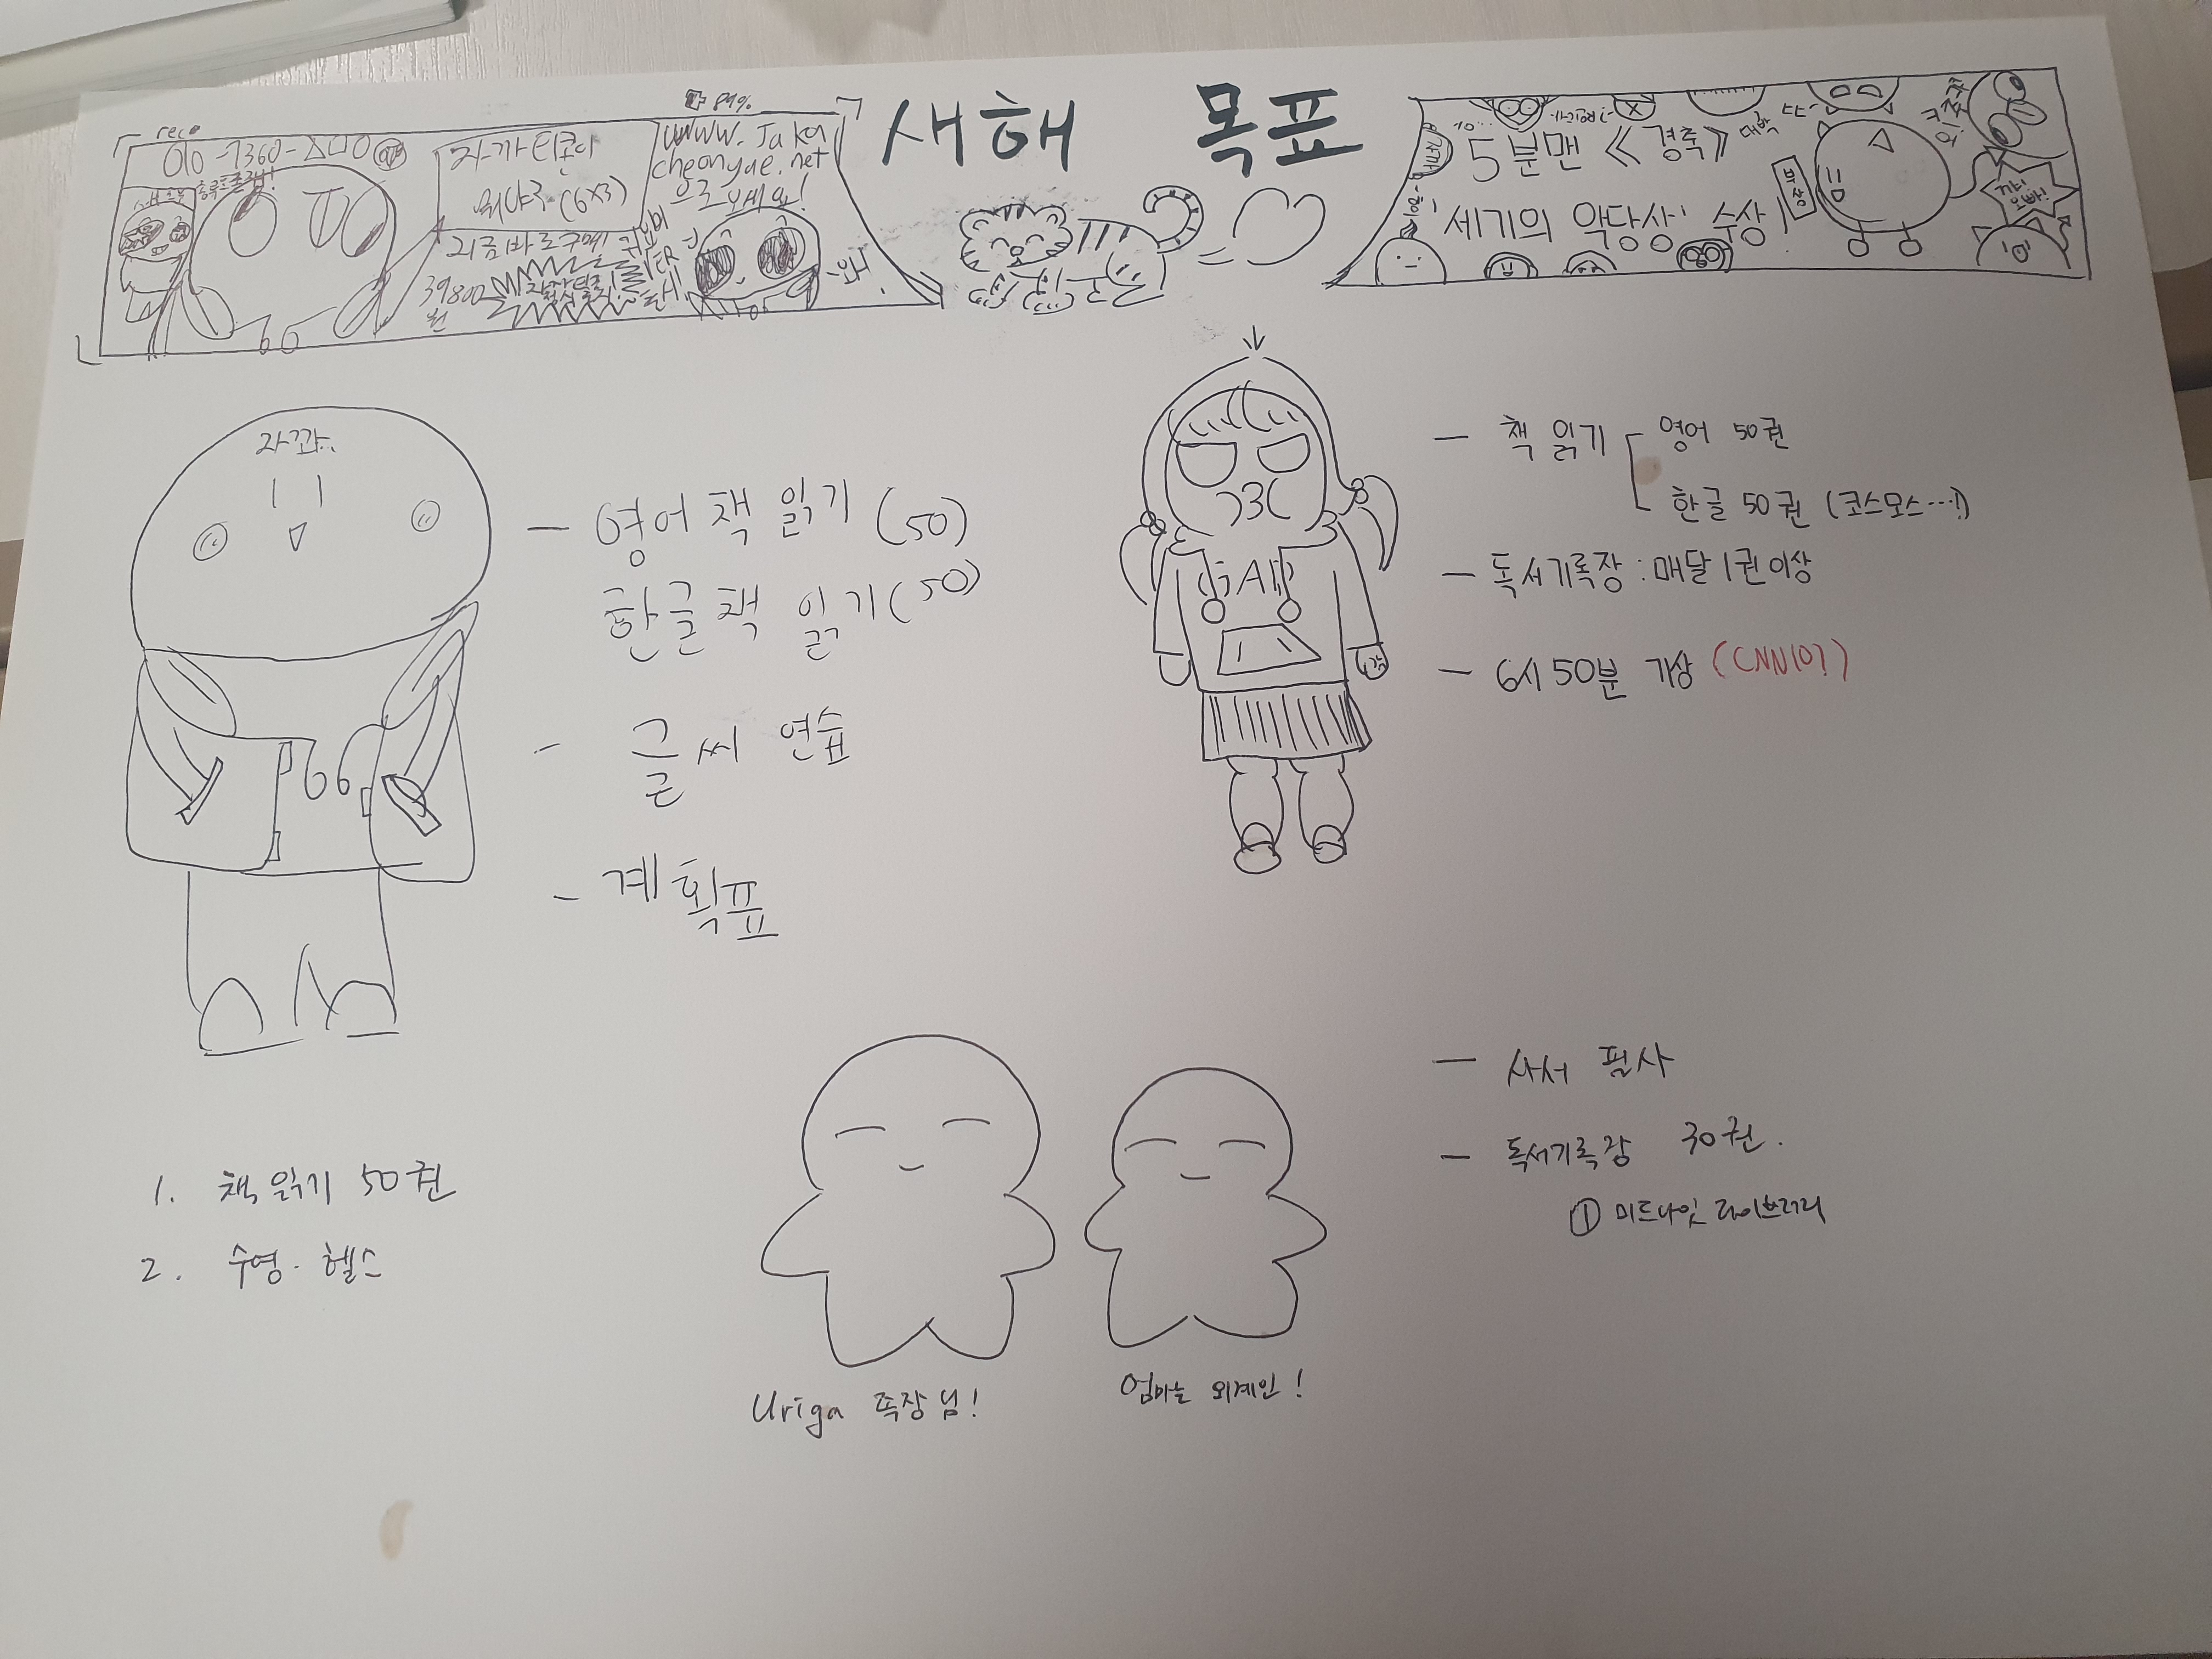 새해 목표
reco
89%
010-7360-
자까 티콘이
뭐야?
www.Jaka
cheonyae.net
으로 오세요!
지금 바로 구매!
39800
원
5분맨 《경축》
대박
'세기의 악당상' 수상!
부상
꺄!
오빠!
자까..
- 영어책 읽기 (50)
한글책 읽기 (50)
- 글씨 연습
- 계획표
GAP
- 책 읽기
영어 50권
한글 50권 (코스모스…!)
- 독서기록장 : 매달 1권이상
- 6시 50분 기상 (CNN10?)
1. 책 읽기 50권
2. 수영 · 헬스
Uriga 족장님!
엄마는 외계인!
- 사서 필사
- 독서기록장 30권.
① 미드나잇 라이브러리